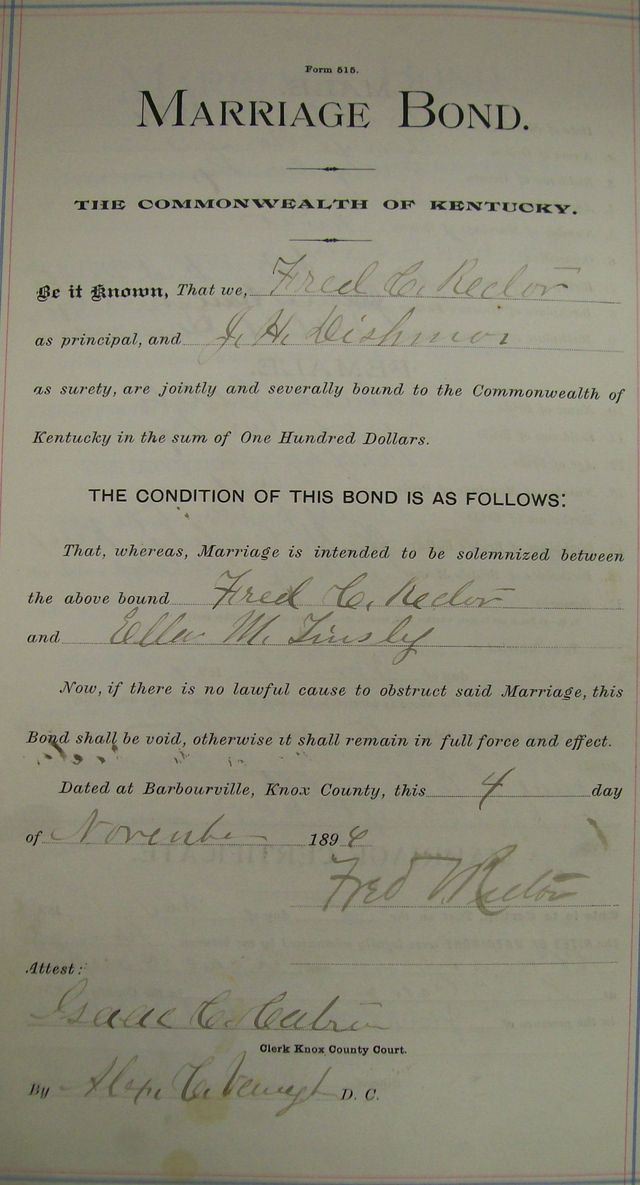 Form 515.
MARRIAGE BOND.
THE COMMONWEALTH OF KENTUCKY.
Be it Known, That we, Fred C. Rector
as principal, and J. H. Dishmon
as surety, are jointly and severally bound to the Commonwealth of
Kentucky in the sum of One Hundred Dollars.
THE CONDITION OF THIS BOND IS AS FOLLOWS:
That, whereas, Marriage is intended to be solemnized between
the above bound Fred C. Rector
and Ella M. Tinsly
Now, if there is no lawful cause to obstruct said Marriage, this
Bond shall be void, otherwise it shall remain in full force and effect.
Dated at Barbourville, Knox County, this 4 day
of November 189
Fred Rector
Attest:
Isaac C. Catron
Clerk Knox County Court.
By Alex. C. D. C.